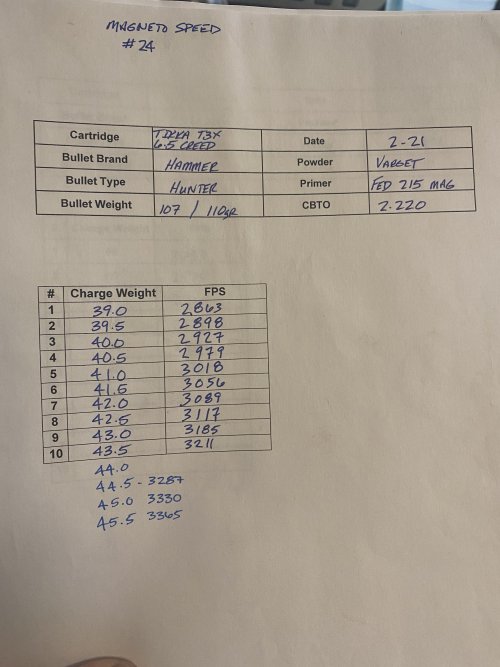 MAGNETO SPEED
#24
Cartridge TIKKA T3X 6.5 CREED Date 2-21
Bullet Brand HAMMER Powder VARGET
Bullet Type HUNTER Primer FED 215 MAG
Bullet Weight 107 / 110gr CBTO 2.220
# Charge Weight FPS
1 39.0 2863
2 39.5 2898
3 40.0 2927
4 40.5 2979
5 41.0 3018
6 41.5 3056
7 42.0 3089
8 42.5 3117
9 43.0 3185
10 43.5 3211
44.0
44.5 - 3287
45.0 3330
45.5 3365